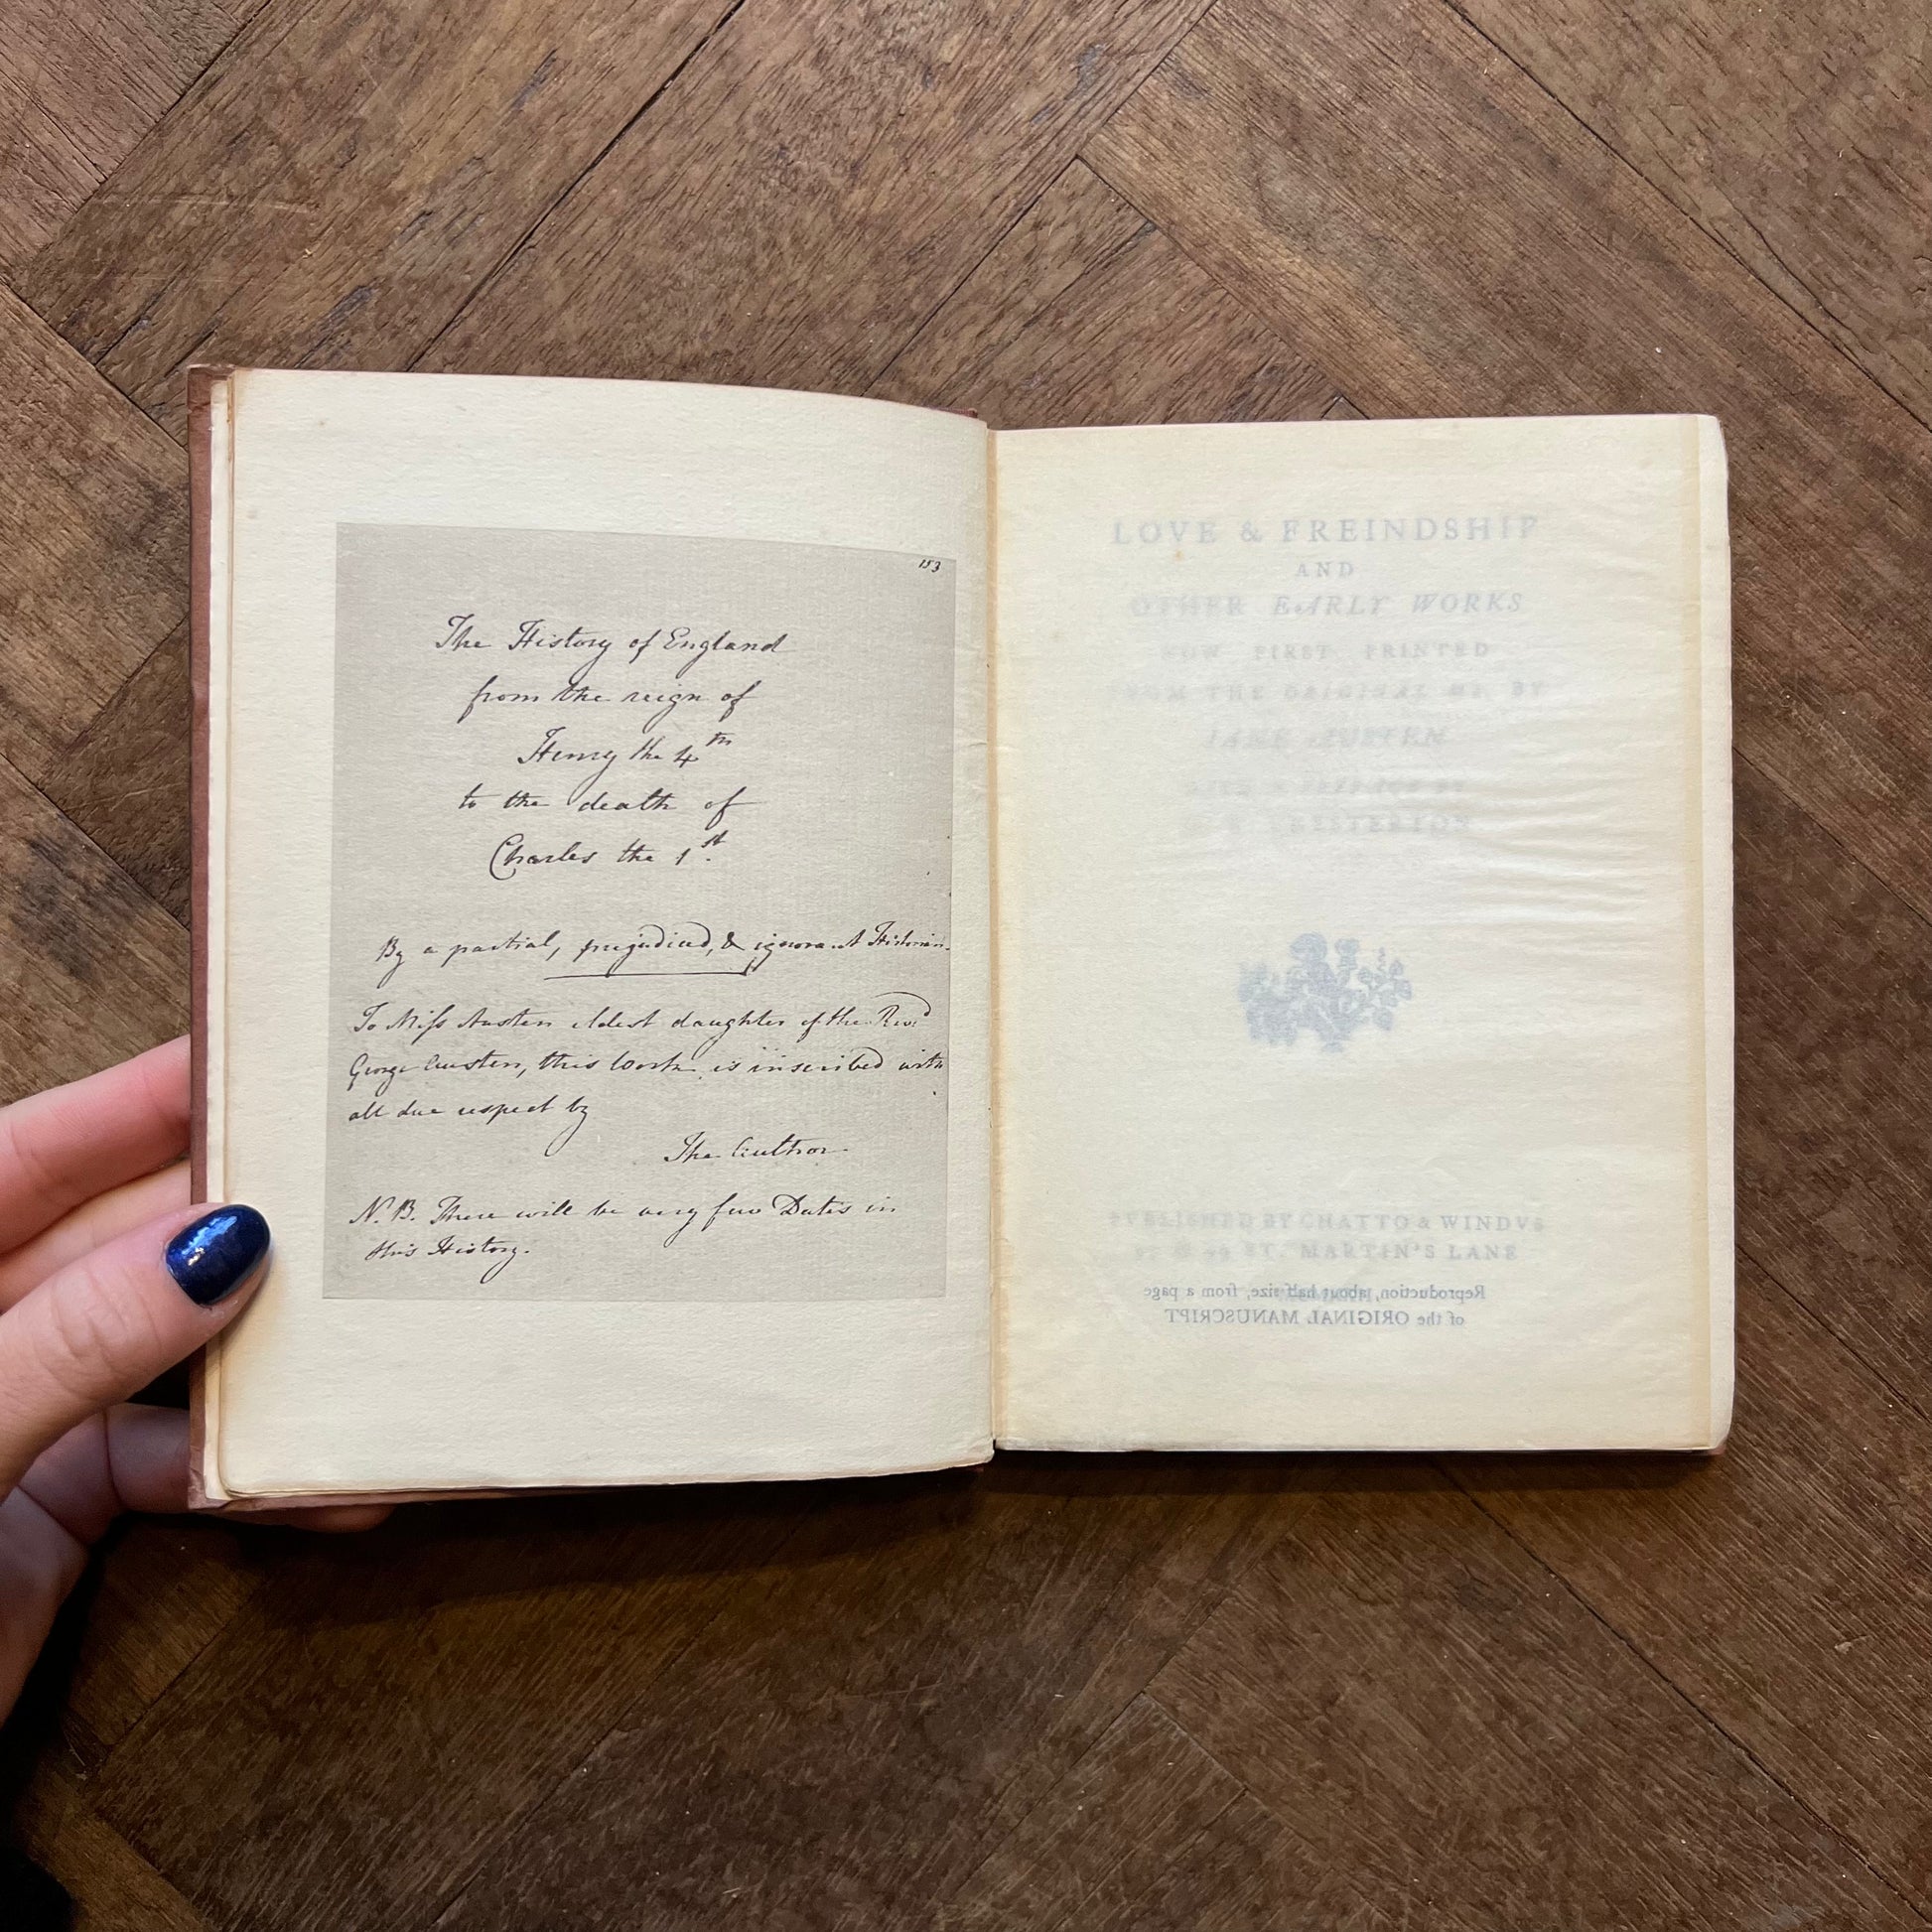 153
The History of England
from the reign of
Henry the 4th
to the death of
Charles the 1st.
By a partial, prejudiced, & ignorant Historian.
To Miss Austen eldest daughter of the Revd
George Austen, this Work is inscribed with
all due respect by
The Author
N.B. There will be very few Dates in
this History.
LOVE & FREINDSHIP
AND
OTHER EARLY WORKS
NOW FIRST PRINTED
FROM THE ORIGINAL MS. BY
JANE AUSTEN
WITH A PREFACE BY
CHESTERTON
PUBLISHED BY CHATTO & WINDVS
ST. MARTIN'S LANE
Reproduction, about half size, from a page
of the ORIGINAL MANUSCRIPT